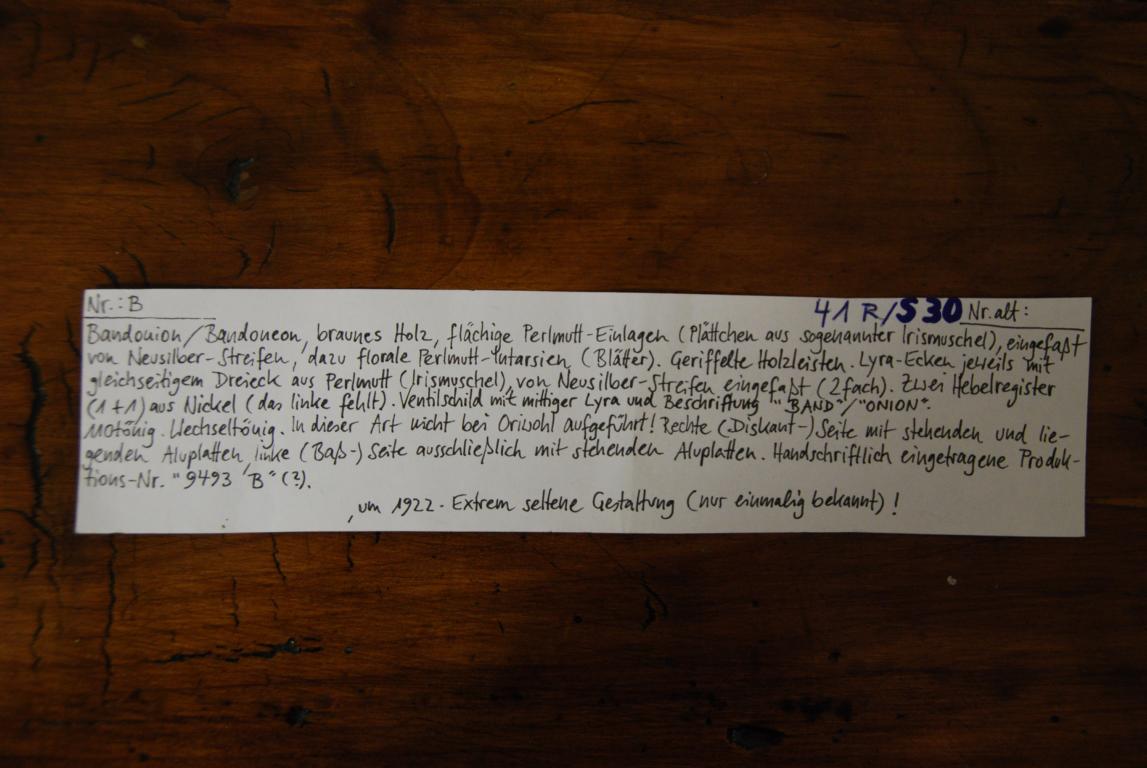 Nr.: B 41 R/S 30 Nr. alt:
Bandonion/Bandoneon, braunes Holz, flächige Perlmutt-Einlagen (Plättchen aus sogenannter Irismuschel), eingefaßt
von Neusilber-Streifen, dazu florale Perlmutt-Intarsien (Blätter). Geriffelte Holzleisten. Lyra-Ecken jeweils mit
gleichseitigem Dreieck aus Perlmutt (Irismuschel), von Neusilber-Streifen eingefaßt (2fach). Zwei Hebelregister
(1+1) aus Nickel (das linke fehlt). Ventilschild mit mittiger Lyra und Beschriftung "BAND"/"ONION".
110tönig. Wechseltönig. In dieser Art nicht bei Oriwohl aufgeführt! Rechte (Diskant-) Seite mit stehenden und lie-
genden Aluplatten, linke (Baß-) Seite ausschließlich mit stehenden Aluplatten. Handschriftlich eingetragene Produk-
tions-Nr. "9493 'B" (?).
, um 1922. Extrem seltene Gestaltung (nur einmalig bekannt)!